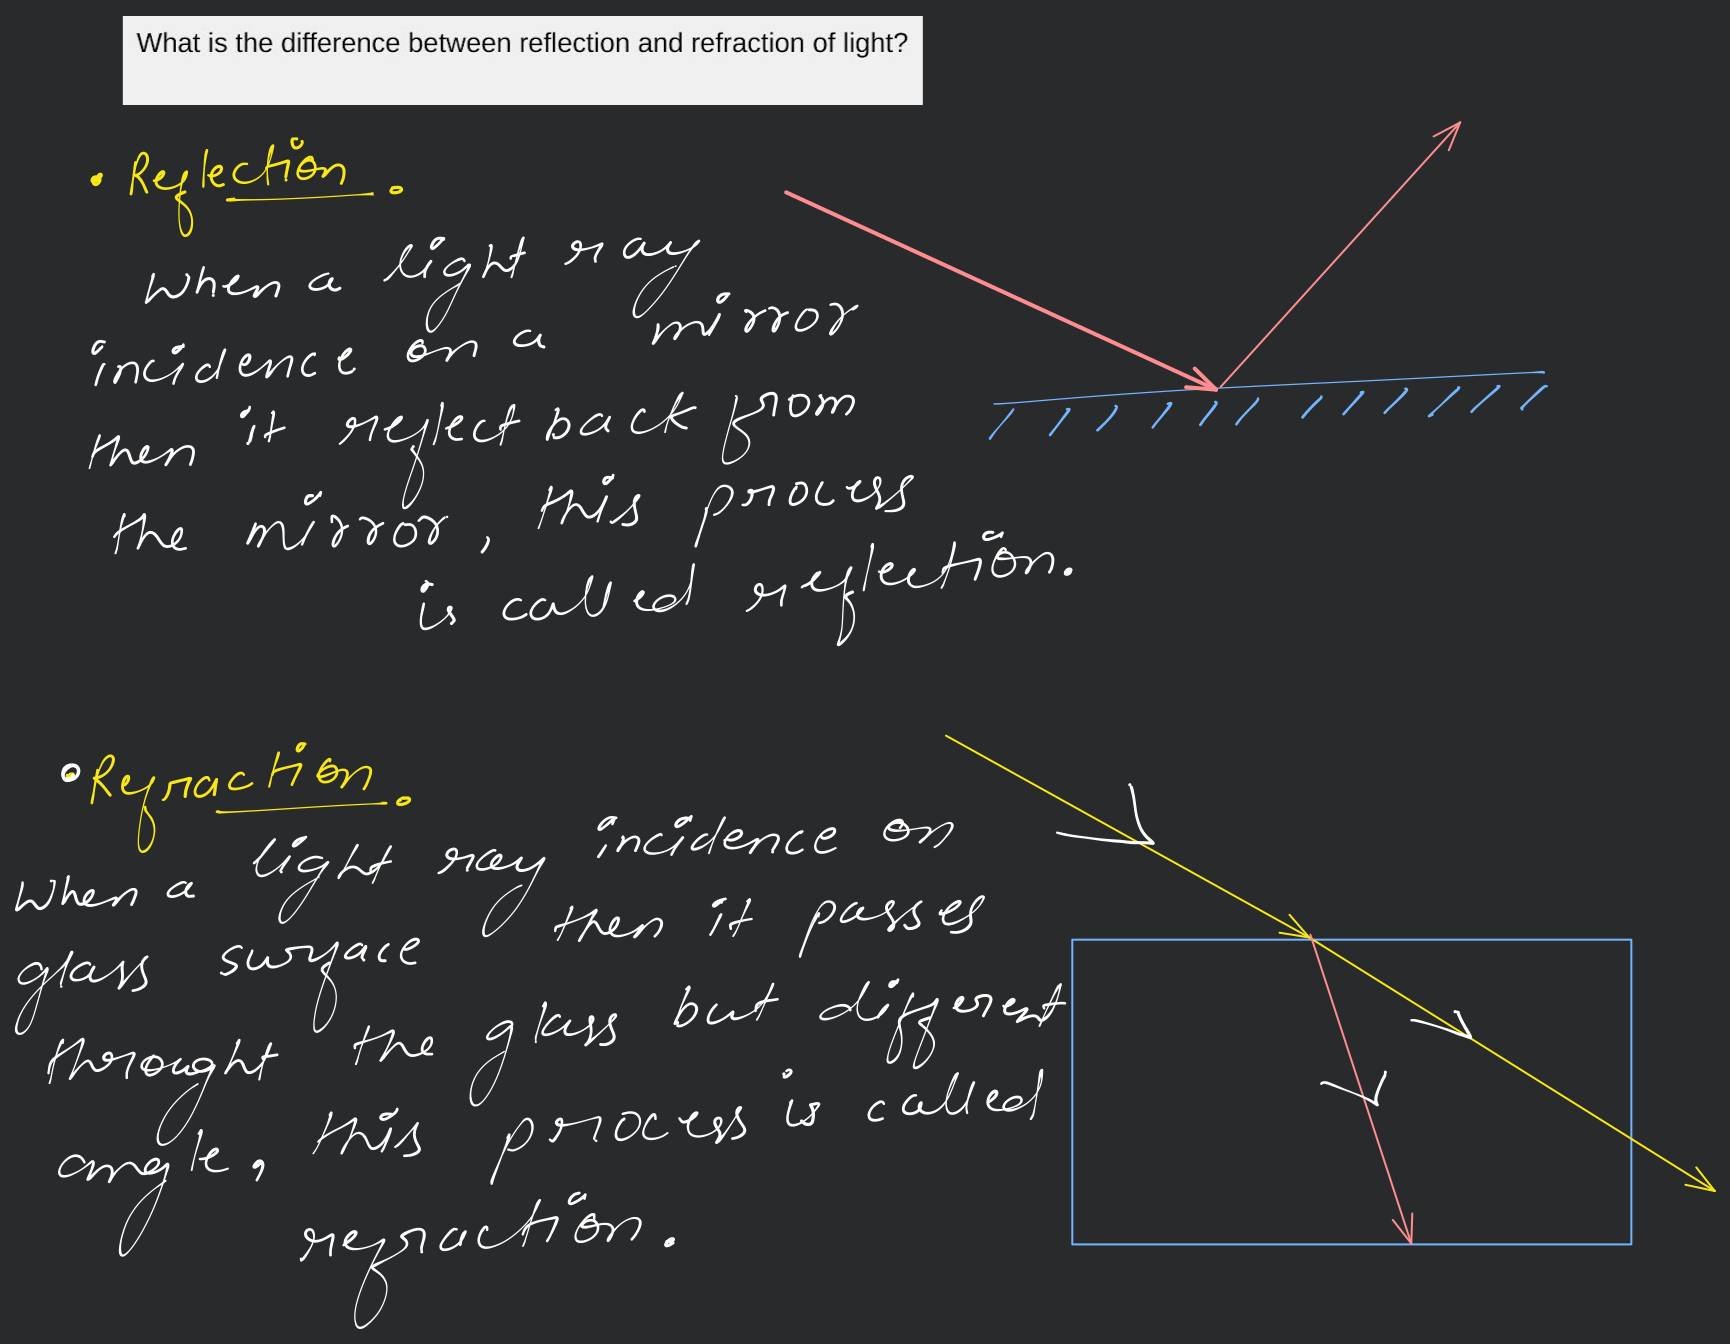 What is the difference between reflection and refraction of light?
• Reflection.
When a light ray
incidence on a mirror
then it reflect back from
the mirror, this process
is called reflection.
• Refraction.
When a light ray incidence on
glass surface then it passes
throught the glass but different
angle, this process is called
refraction.